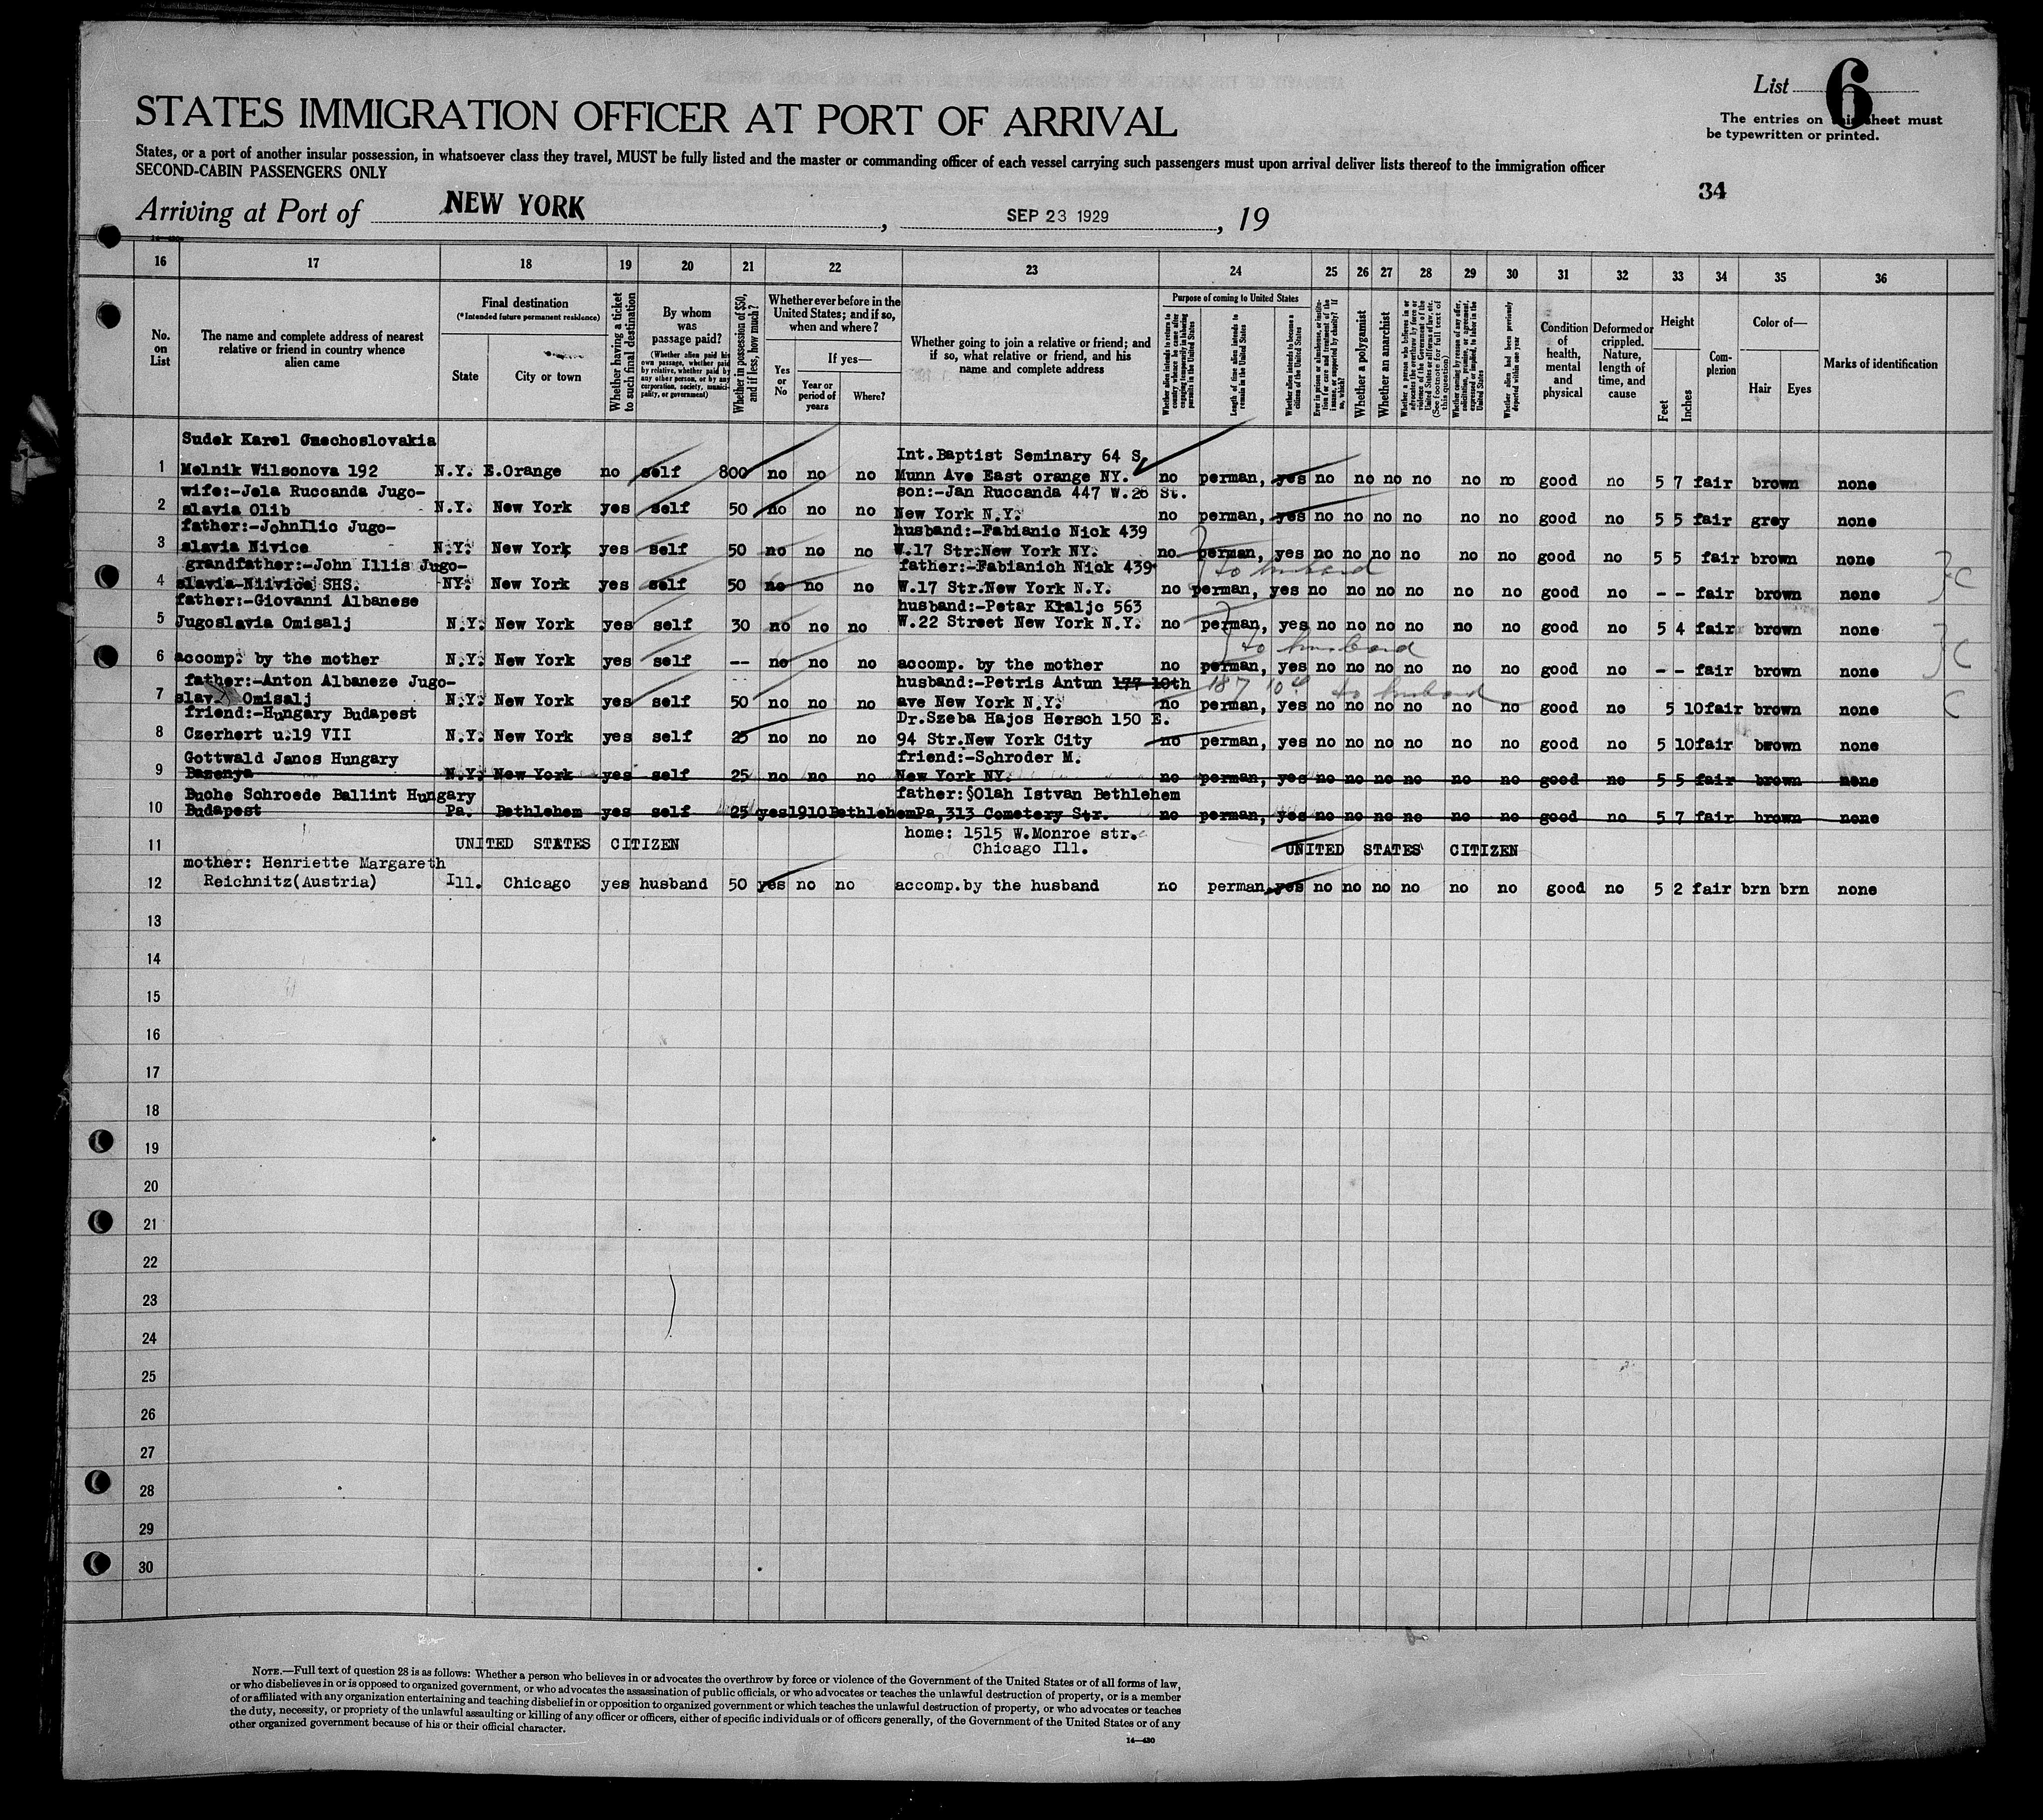 List 6
The entries on this sheet must
be typewritten or printed.
STATES IMMIGRATION OFFICER AT PORT OF ARRIVAL
States, or a port of another insular possession, in whatsoever class they travel, MUST be fully listed and the master or commanding officer of each vessel carrying such passengers must upon arrival deliver lists thereof to the immigration officer
SECOND-CABIN PASSENGERS ONLY
34
Arriving at Port of NEW YORK , SEP 23 1929 , 19
16 17 18 19 20 21 22 23 24 25 26 27 28 29 30 31 32 33 34 35 36
No. on List
The name and complete address of nearest relative or friend in country whence alien came
Final destination
(*Intended future permanent residence)
State
City or town
Whether having a ticket to such final destination
By whom was passage paid?
(Whether alien paid his own passage, whether paid by relative, whether paid by any other person, or by any corporation, society, municipality, or government)
Whether in possession of $50, and if less, how much?
Whether ever before in the United States; and if so, when and where?
Yes or No
If yes—
Year or period of years
Where?
Whether going to join a relative or friend; and if so, what relative or friend, and his name and complete address
Purpose of coming to United States
Whether alien intends to return to country whence he came after engaging temporarily in laboring pursuits in the United States
Length of time alien intends to remain in the United States
Whether alien intends to become a citizen of the United States
Whether a polygamist
Whether an anarchist
Whether alien had been previously deported within one year
Condition of health, mental and physical
Deformed or crippled. Nature, length of time, and cause
Height
Feet
Inches
Complexion
Color of—
Hair
Eyes
Marks of identification
Sudek Karel Czechoslovakia Int.Baptist Seminary 64 S.
1 Melnik Wilsonova 192 N.Y. E.Orange no self 800 no no no Munn Ave East orange NY. no perman, yes no no no no no no good no 5 7 fair brown none
wife:-Jela Ruccanda Jugo- son:-Jan Ruccanda 447 W.26 St.
2 slavia Olib N.Y. New York yes self 50 no no no New York N.Y. no perman, yes no no no no no no good no 5 5 fair grey none
father:-JohnIlic Jugo- husband:-Fabianic Nick 439
3 slavia Nivice N.Y. New York yes self 50 no no no W.17 Str.New York NY. no perman, yes no no no no no no good no 5 5 fair brown none
grandfather:-John Illis Jugo- father:-Fabianich Nick 439 to husband
4 slavia-Niivice SHS. NY. New York yes self 50 no no no W.17 Str.New York N.Y. no perman, yes no no no no no no good no - - fair brown none C
father:-Giovanni Albanese husband:-Petar Kraljc 563
5 Jugoslavia Omisalj N.Y. New York yes self 30 no no no W.22 Street New York N.Y. no perman, yes no no no no no no good no 5 4 fair brown none
to husband
6 accomp. by the mother N.Y. New York yes self -- no no no accomp. by the mother no perman, yes no no no no no no good no - - fair brown none C
father:-Anton Albaneze Jugo- husband:-Petris Antun 177 10th 187 10th to husband
7 slav. Omisalj N.Y. New York yes self 50 no no no ave New York N.Y. no perman, yes no no no no no no good no 5 10 fair brown none C
friend:-Hungary Budapest Dr.Szeba Hajos Hersch 150 E.
8 Czerhert u.19 VII N.Y. New York yes self 25 no no no 94 Str.New York City no perman, yes no no no no no no good no 5 10 fair brown none
Gottwald Janos Hungary friend:-Schroder M.
9 Bazenya N.Y. New York yes self 25 no no no New York NY. no perman, yes no no no no no no good no 5 5 fair brown none
Buche Schroede Ballint Hungary father:§Olah Istvan Bethlehem
10 Budapest Pa. Bethlehem yes self 25 yes 1910 Bethlehem Pa,313 Cemetery Str. no perman, yes no no no no no no good no 5 7 fair brown none
home: 1515 W.Monroe str.
11 UNITED STATES CITIZEN Chicago Ill. UNITED STATES CITIZEN
mother: Henriette Margareth
12 Reichnitz(Austria) Ill. Chicago yes husband 50 yes no no accomp.by the husband no perman yes no no no no no no good no 5 2 fair brn brn none
13
14
15
16
17
18
19
20
21
22
23
24
25
26
27
28
29
30
NOTE.—Full text of question 28 is as follows: Whether a person who believes in or advocates the overthrow by force or violence of the Government of the United States or of all forms of law,
or who disbelieves in or is opposed to organized government, or who advocates the assassination of public officials, or who advocates or teaches the unlawful destruction of property, or is a member
of or affiliated with any organization entertaining and teaching disbelief in or opposition to organized government or which teaches the unlawful destruction of property, or who advocates or teaches
the duty, necessity, or propriety of the unlawful assaulting or killing of any officer or officers, either of specific individuals or of officers generally, of the Government of the United States or of any
other organized government because of his or their official character.
14—430